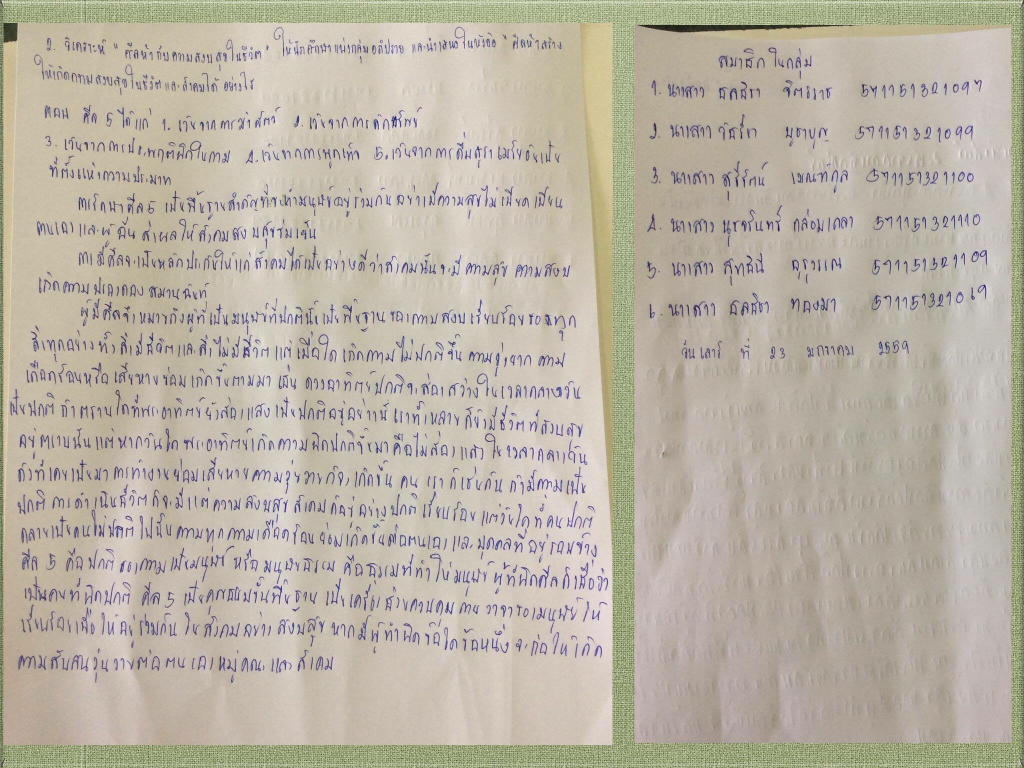 2. วิเคราะห์ "ศีลห้ากับความสงบสุขในชีวิต" ให้นักศึกษาแบ่งกลุ่มอภิปราย และนำเสนอในหัวข้อ "ศีลห้าสร้าง
ให้เกิดความสงบสุขในชีวิตและสังคมได้อย่างไร
ตอบ ศีล 5 ได้แก่ 1. เว้นจากการฆ่าสัตว์ 2. เว้นจากการลักทรัพย์
3. เว้นจากการประพฤติผิดในกาม 4. เว้นจากการพูดเท็จ 5. เว้นจากการดื่มสุราเมรัยอันเป็น
ที่ตั้งแห่งความประมาท
การรักษาศีล 5 เป็นพื้นฐานสำคัญที่จะทำมนุษย์อยู่ร่วมกันอย่างมีความสุขไม่เบียดเบียน
ตนเองและผู้อื่น ส่งผลให้สังคมสงบสุขร่มเย็น
การมีศีลจะเป็นหลักประกันให้แก่สังคมได้เป็นอย่างดีว่าสังคมนั้นจะมีความสุข ความสงบ
เกิดความปรองดองสมานฉันท์
ผู้มีศีลจึงหมายถึงผู้ที่เป็นมนุษย์ที่ปกตินั้นเป็นพื้นฐานของความสงบเรียบร้อยของทุก
สิ่งทุกอย่างทั้งสิ่งมีชีวิตและสิ่งไม่มีชีวิต แต่เมื่อใดเกิดความไม่ปกติขึ้น ความยุ่งยาก ความ
เดือดร้อนหรือเสียหายย่อมเกิดขึ้นตามมา เช่น ดวงอาทิตย์ปกติจะส่องสว่างในเวลากลางวัน
เป็นปกติ ถ้าตราบใดที่พระอาทิตย์ยังส่องแสงเป็นปกติอยู่อย่างนี้ เราทั้งหลายก็ยังมีชีวิตที่สงบสุข
อยู่ตราบนั้น แต่หากวันใดพระอาทิตย์เกิดความผิดปกติขึ้นมาคือไม่ส่องแสงในเวลากลางวัน
ดังที่เคยเป็นมา การทำงานย่อมเสียหายความวุ่นวายก็จะเกิดขึ้น คนเราก็เช่นกัน ถ้ามีความเป็น
ปกติ การดำเนินชีวิตก็จะมีแต่ความสงบสุข สังคมก็อยู่อย่างปกติเรียบร้อย แต่วันใดที่คนปกติ
กลายเป็นคนไม่ปกติไปนั้นความทุกความเดือดร้อนย่อมเกิดขึ้นต่อตนเองและบุคคลที่อยู่รอบข้าง
ศีล 5 คือปกติของความเป็นมนุษย์ หรือมนุษยธรรม คือธรรมที่ทำให้มนุษย์ ผู้ที่ผิดศีลก็เชื่อว่า
เป็นคนที่ผิดปกติ ศีล 5 เป็นคุณธรรมขั้นพื้นฐาน เป็นเครื่องช่วยควบคุม กาย วาจาของมนุษย์ให้
เรียบร้อยเพื่อให้อยู่ร่วมกันในสังคมอย่างสงบสุข หากมีผู้ทำผิดข้อใดข้อหนึ่งจะก่อให้เกิด
ความสับสนวุ่นวายต่อตนเองหมู่คณะและสังคม
สมาชิกในกลุ่ม
1. นางสาว ชลธิชา จิตรวาช 571151321097
2. นางสาว วัชรียา บูชาบุญ 571151321099
3. นางสาว สุรีรัตน์ เมฆทกูล 571151321100
4. นางสาว นุชจรินทร์ กล่อมเกลา 571151321110
5. นางสาว สุทธินี 571151321109
6. นางสาว ชลธิชา ทองมา 571151321069
วันเสาร์ ที่ 23 มกราคม 2559